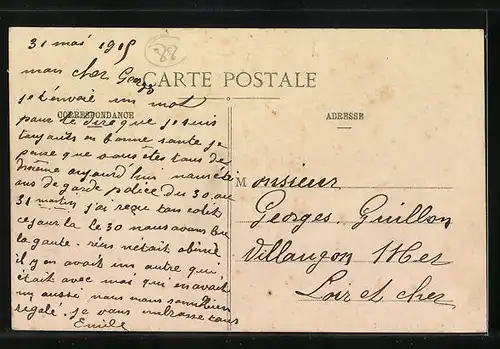 31 mai 1915
88
mon cher Georges
CARTE POSTALE
je t'envoie un mot
pour te dire que je suis
CORRESPONDANCE
ADRESSE
toujours en bonne sante je
pense que vous êtes tous de
même aujourd'hui nous
ans de garde police du 30 au
31 j'ai reçu ton colit
ce jour la le 30 nous avons bu
la goute. rien netait abimé
il y en avait un autre qui
était avec moi qui en avait
un aussi nous nous sommes bien
regale. je vous embrasse tous
Emile
Monsieur
Georges Guillon
Villangon
Loir et cher